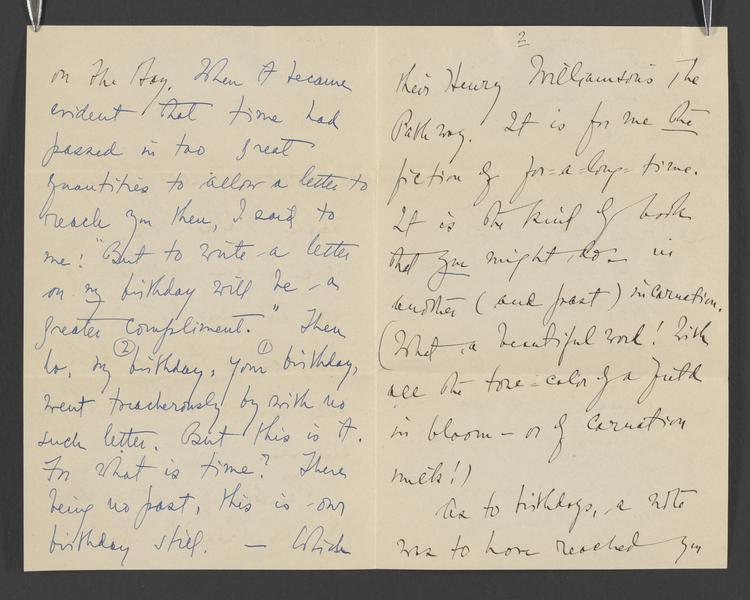 2
their Henry Williamson's The
Pathway. It is for me the
fiction of for-a-long-time.
It is the kind of book
that you might do in
another (and past) incarnation.
(What a beautiful word! With
all the tone-color of a field
in bloom – or of carnation
milk!)
As to birthdays, a note
was to have reached you
on the day. When it became
evident that time had
passed in too great
quantities to allow a letter to
reach you then, I said to
me: "But to write a letter
on my birthday will be a
greater compliment." Then
lo, my ② birthday, your ① birthday,
went treacherously by with no
such letter. But this is it.
For what is time? There
being no past, this is our
birthday still. — Which